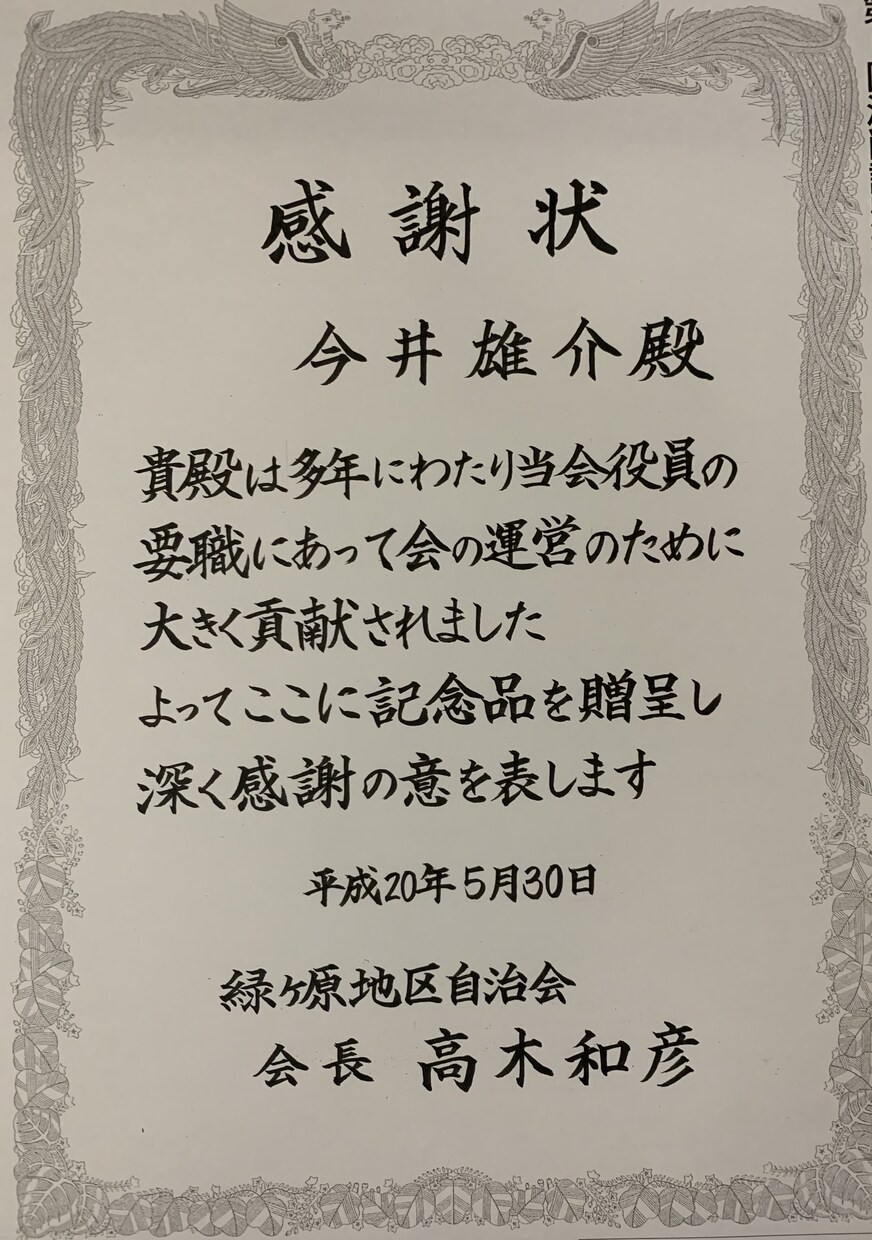 感謝状
今井雄介殿
貴殿は多年にわたり当会役員の
要職にあって会の運営のために
大きく貢献されました
よってここに記念品を贈呈し
深く感謝の意を表します
平成20年5月30日
緑ヶ原地区自治会
会長 高木和彦